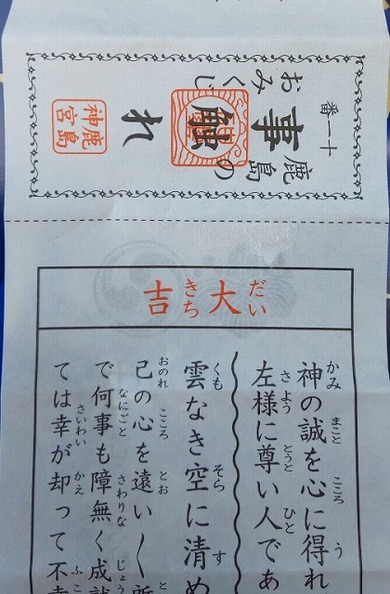 十一番
鹿島の
事触れ
おみくじ
鹿島神宮
大吉
神の誠を心に得れ
左様に尊い人であ
雲なき空に清め
己の心を遠い〱所
で何事も障無く成就
ては幸が却って不幸